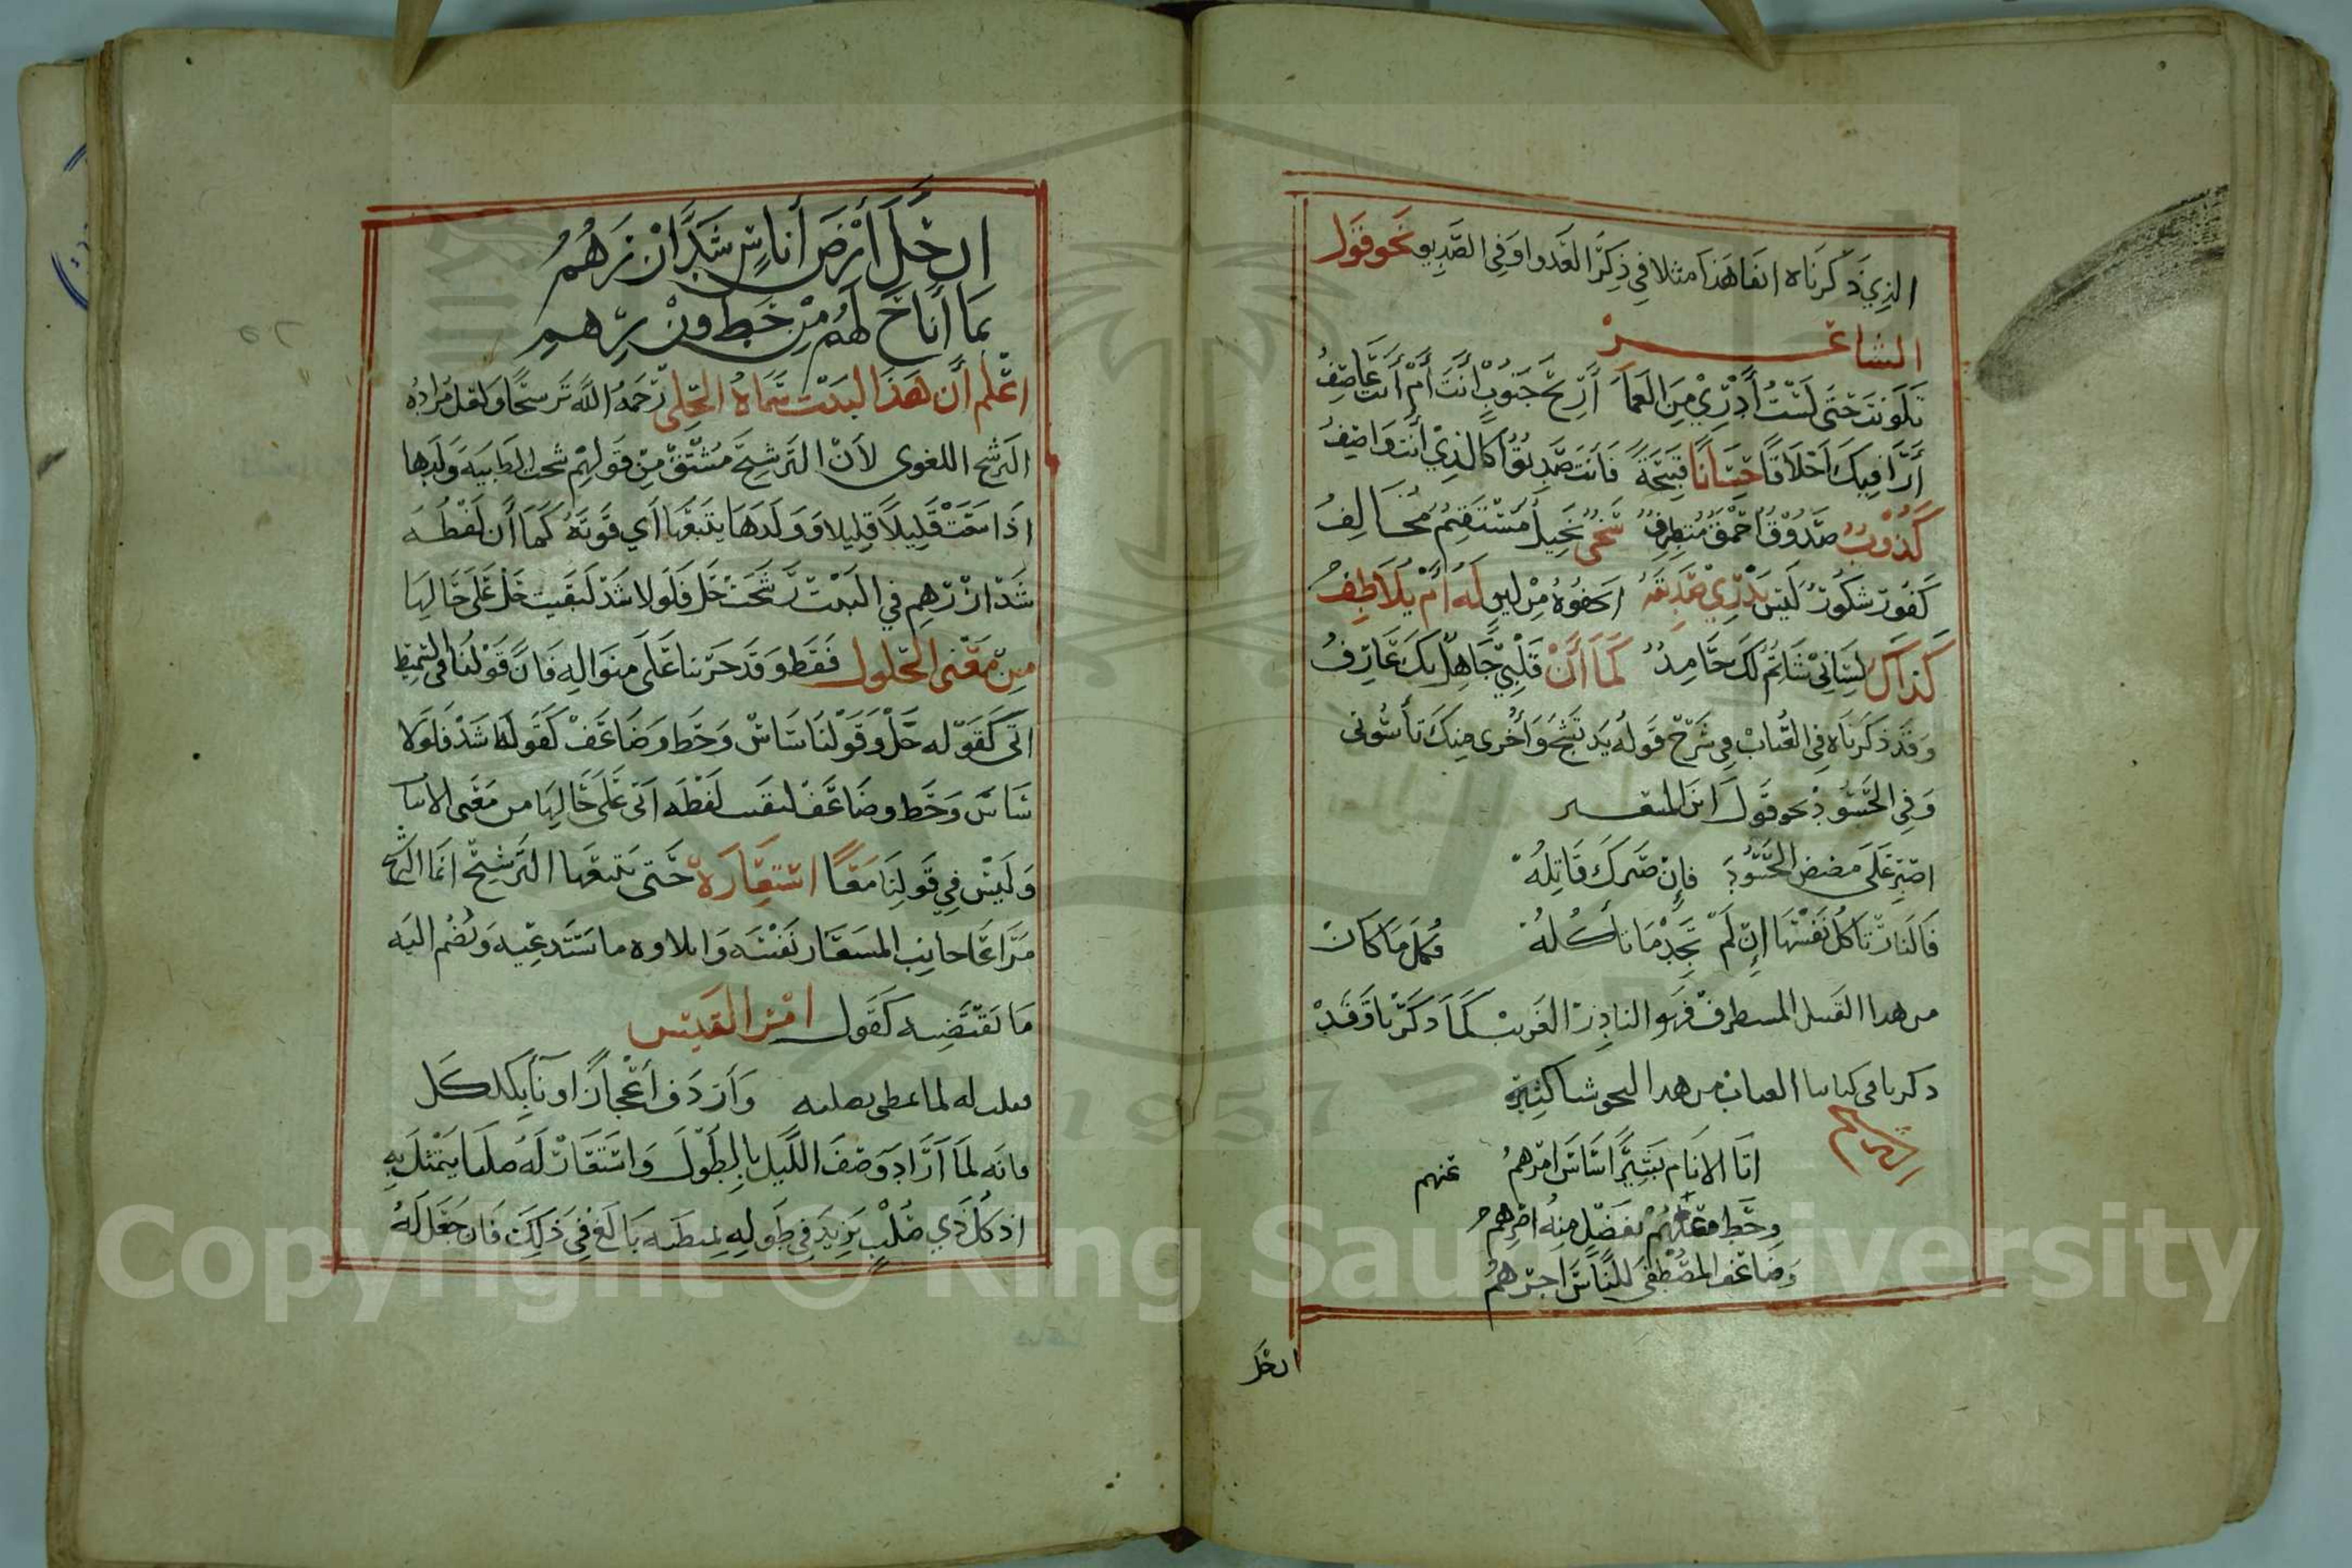 الذي ذكرناه انفا هذا مثلا في ذكر العدو او في الصديق نحو قول
الشاعر
تلونت حتى لست أدري من العما أريح جنوب انت أم أنت عاصف
أرا فيك أخلاقا حسانا قبيحة فأنت صديق كالذي أنت واصف
كذوب صدوق احمق متطرف سخي بخيل مستقيم مخالف
كفور شكور ليس يدري صديقه ايجفوه من له أم يلاطف
كذاك لساني شاتم لك حامد كما أن قلبي جاهل بك عارف
وقد ذكرناه في العباب في شرح قوله يد تشج وأخرى منك تأسوني
وفي الحسود نحو قول ابن المعتز
اصبر على مضض الحسود فإن صبرك قاتله
فالنار تاكل نفسها إن لم تجد ما تأكله فكل ما كان
من هذا القبيل المستطرف فهو النادر الغريب كما ذكرنا وقد
ذكرنا في كتابنا العباب من هذا النحو شيا كثيرة
الترشيح
اتا الانام بشيرا ساس امرهم عنهم
وحط بفضل منه اصرهم
وضاعف المصطفى للناس اجرهم
ان حل
ان حل أرض أناس شد ازرهم
بما أناخ لهم من حط وزرهم
اعلم أن هذا البيت سماه الحلي رحمه الله ترشيحا ولعل مراده
الترشيح اللغوي لأن الترشيح مشتق من قولهم رشحت الظبية ولدها
اذا سقت قليلا قليلا وولدها يتبعها أي قوته كما أن لفظه
شد ازرهم في البيت رشحت حل فلولا شد لبقيت حل على حالها
من معنى الحلول فقط وقد جرينا على منواله فان قولنا في التسميط
اتى كقوله حل وقولنا ساس وحط وضاعف كقوله شد فلولا
ساس وحط وضاعف لبقيت لفظه اتى على حالها من معنى الاتيان
وليس في قولنا معا استعارة حتى يتبعها الترشيح انما الترشيح
مراعا جانب المستعار نفسه وايلاوه ما يستدعيه ويضم اليه
ما يقتضيه كقول امرء القيس
فقلت له لما تمطى بصلبه وأردف أعجازا وناء بكلكل
فانه لما أراد وصف الليل بالطول واستعار له صلبا يتمثل به
اذ كل ذي صلب يزيد في طوله تمطيه بالغ في ذلك فان جعل له
Copyright © King Saud University
1957